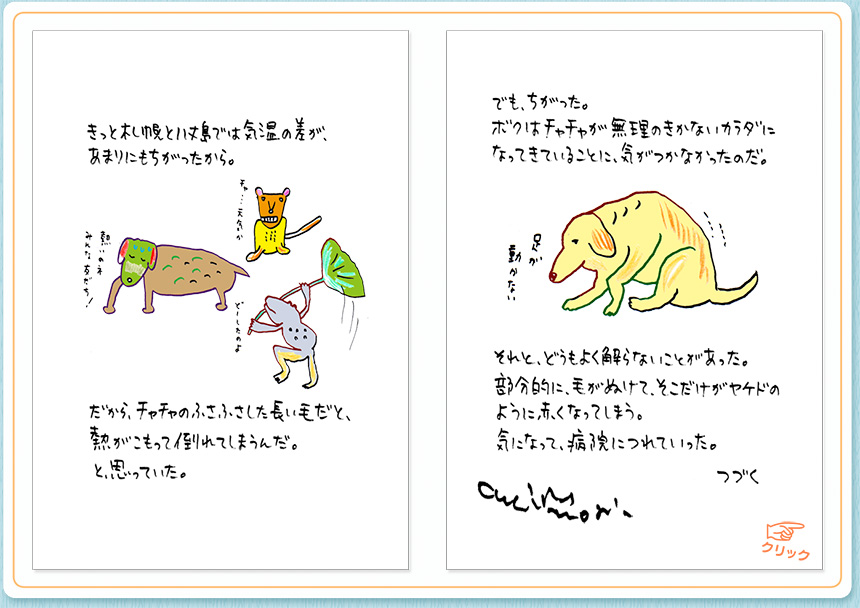 きっと札幌と八丈島では気温の差が、
あまりにもちがったから。
チャ…元気か
熱いのネ
みんな友だち！
どーしたのよ
だから、チャチャのふさふさした長い毛だと、
熱がこもって倒れてしまうんだ。
と、思っていた。
でも、ちがった。
ボクはチャチャが無理のきかないカラダに
なってきていることに、気がつかなかったのだ。
足が
動かない
それと、どうもよく解らないことがあった。
部分的に、毛がぬけて、そこだけがヤケドの
ように赤くなってしまう。
気になって、病院につれていった。
つづく
クリック